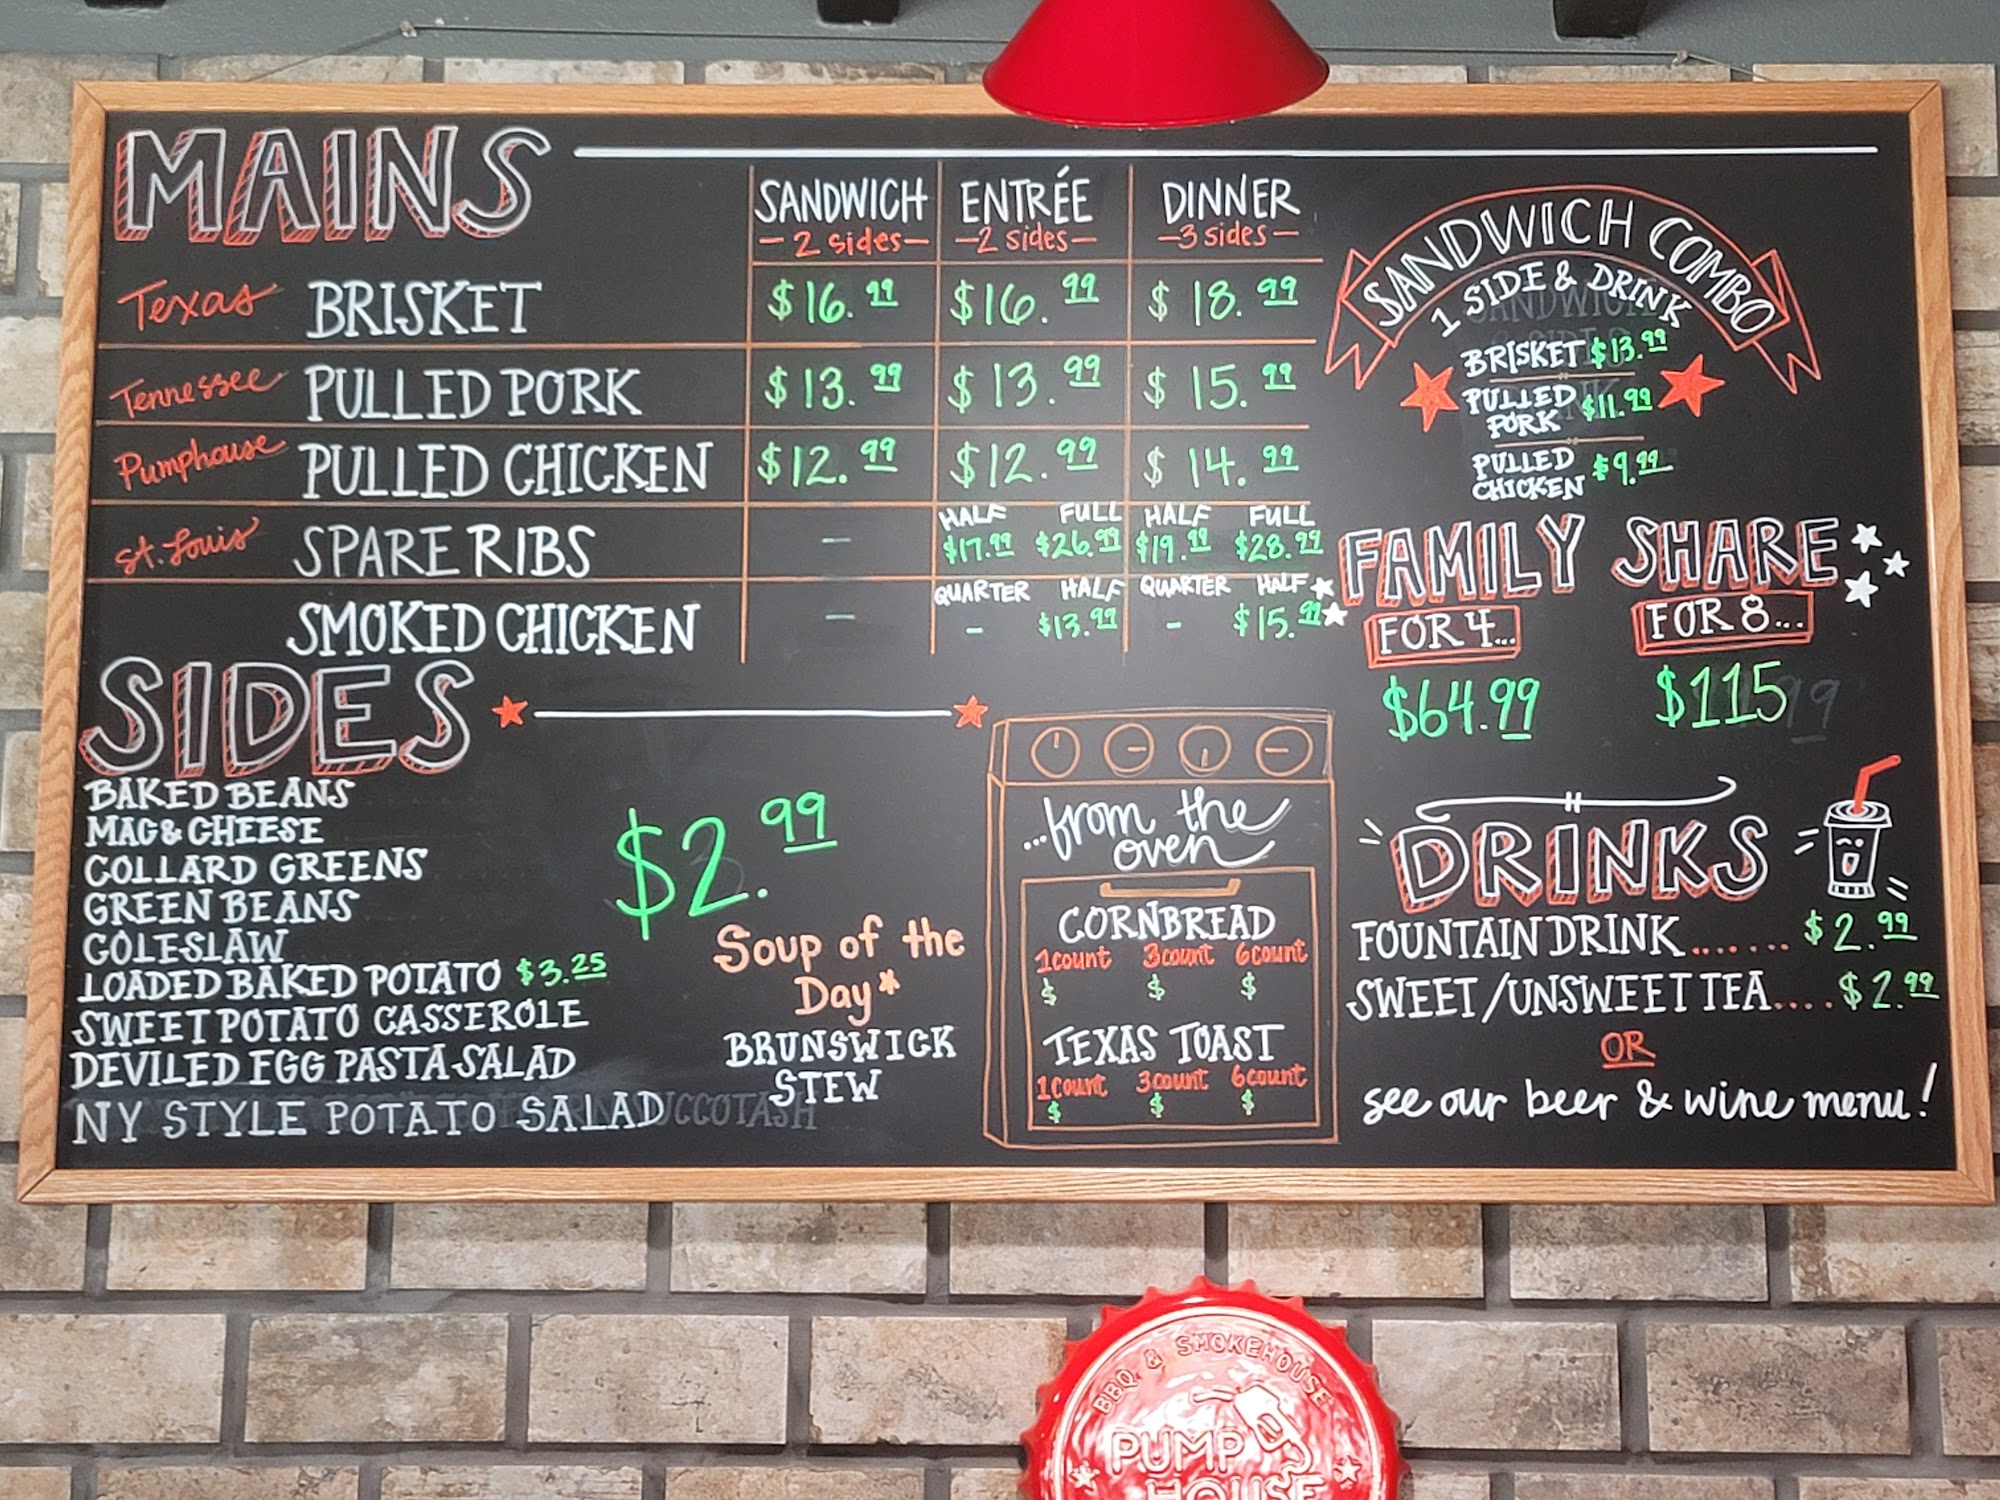 MAINS
SANDWICH ENTRÉE DINNER
- 2 sides - - 2 sides - - 3 sides -
Texas BRISKET $16.99 $16.99 $18.99
Tennessee PULLED PORK $13.99 $13.99 $15.99
Pumphouse PULLED CHICKEN $12.99 $12.99 $14.99
HALF FULL HALF FULL
St. Louis SPARE RIBS - $17.99 $26.99 $19.99 $28.99
QUARTER HALF QUARTER HALF
SMOKED CHICKEN - - $13.99 - $15.99
SANDWICH COMBO
1 SIDE & DRINK
BRISKET $13.99
PULLED
PORK $11.99
PULLED
CHICKEN $9.99
FAMILY SHARE
FOR 4... FOR 8...
$64.99 $115
SIDES
BAKED BEANS
MAC & CHEESE
COLLARD GREENS
GREEN BEANS
COLESLAW
LOADED BAKED POTATO $3.25
SWEET POTATO CASSEROLE
DEVILED EGG PASTA SALAD
NY STYLE POTATO SALAD
$2.99
Soup of the
Day*
BRUNSWICK
STEW
...from the
oven
CORNBREAD
1count 3count 6count
$ $ $
TEXAS TOAST
1count 3count 6count
$ $ $
DRINKS
FOUNTAIN DRINK....... $2.99
SWEET/UNSWEET TEA.... $2.99
OR
see our beer & wine menu!
BBQ & SMOKEHOUSE
PUMP
HOUSE